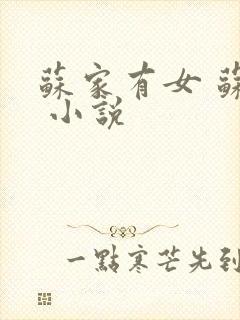 蘇家有女 蘇
小說
一點寒芒先到